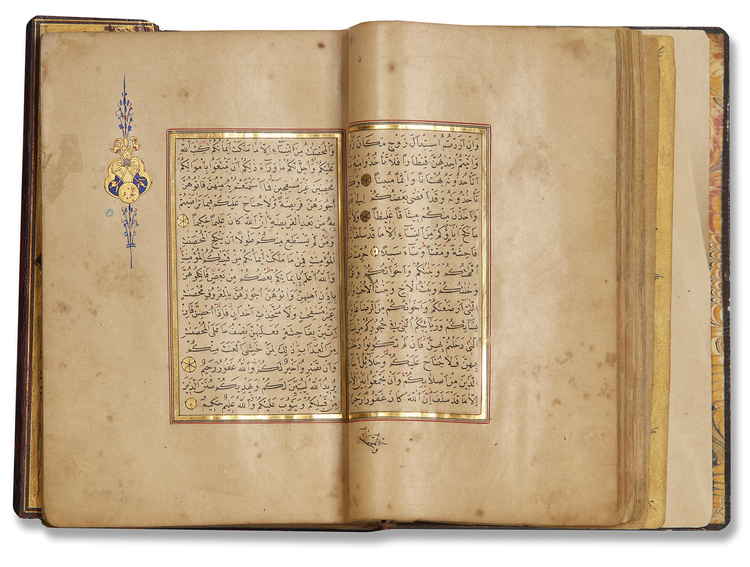 وَإِنْ أَرَدْتُمُ اسْتِبْدَالَ زَوْجٍ مَكَانَ
وَاٰتَيْتُمْ اِحْدٰيهُنَّ قِنْطَارًا فَلَا تَأْخُذُوا مِنْهُ
تَأْخُذُونَهُ بُهْتَانًا وَاِثْمًا مُبِينًا
تَأْخُذُونَهُ وَقَدْ اَفْضٰى بَعْضُكُمْ اِلٰى
وَاَخَذْنَ مِنْكُمْ مِيثَاقًا غَلِيظًا وَلَا
نَكَحَ اٰبَاؤُكُمْ مِنَ النِّسَاءِ اِلَّا مَا قَدْ سَلَفَ
فَاحِشَةً وَمَقْتًا وَسَاءَ سَبِيلًا حُرِّمَتْ
وَبَنَاتُكُمْ وَاَخَوَاتُكُمْ
وَخَالَاتُكُمْ وَبَنَاتُ الْاَخِ وَبَنَاتُ الْاُخْتِ
الّٰتِي اَرْضَعْنَكُمْ وَاَخَوَاتُكُمْ مِنَ الرَّضَاعَةِ
نِسَائِكُمْ وَرَبَائِبُكُمُ الّٰتِي فِي حُجُورِكُمْ مِنْ
الّٰتِي دَخَلْتُمْ بِهِنَّ فَاِنْ لَمْ تَكُونُوا دَخَلْتُمْ
بِهِنَّ فَلَا جُنَاحَ عَلَيْكُمْ وَحَلَائِلُ
الَّذِينَ مِنْ اَصْلَابِكُمْ وَاَنْ تَجْمَعُوا بَيْنَ
اِلَّا مَا قَدْ سَلَفَ اِنَّ اللّٰهَ كَانَ غَفُورًا رَحِيمًا
وَالْمُحْصَنٰتُ مِنَ النِّسَاءِ اِلَّا مَا مَلَكَتْ اَيْمَانُكُمْ كِتٰبَ اللّٰهِ
عَلَيْكُمْ وَاُحِلَّ لَكُمْ مَا وَرَاءَ ذٰلِكُمْ اَنْ تَبْتَغُوا بِاَمْوَالِكُمْ
مُحْصِنِينَ غَيْرَ مُسَافِحِينَ فَمَا اسْتَمْتَعْتُمْ بِهِ مِنْهُنَّ فَاٰتُوهُنَّ
اُجُورَهُنَّ فَرِيضَةً وَلَا جُنَاحَ عَلَيْكُمْ فِيمَا تَرَاضَيْتُمْ
بِهِ مِنْ بَعْدِ الْفَرِيضَةِ اِنَّ اللّٰهَ كَانَ عَلِيمًا حَكِيمًا
وَمَنْ لَمْ يَسْتَطِعْ مِنْكُمْ طَوْلًا اَنْ يَنْكِحَ الْمُحْصَنٰتِ
الْمُؤْمِنٰتِ فَمِنْ مَا مَلَكَتْ اَيْمَانُكُمْ مِنْ فَتَيٰتِكُمُ الْمُؤْمِنٰتِ
وَاللّٰهُ اَعْلَمُ بِاِيمَانِكُمْ بَعْضُكُمْ مِنْ بَعْضٍ فَانْكِحُوهُنَّ
بِاِذْنِ اَهْلِهِنَّ وَاٰتُوهُنَّ اُجُورَهُنَّ بِالْمَعْرُوفِ مُحْصَنٰتٍ
غَيْرَ مُسَافِحٰتٍ وَلَا مُتَّخِذَاتِ اَخْدَانٍ فَاِذَا اُحْصِنَّ فَاِنْ
اَتَيْنَ بِفَاحِشَةٍ فَعَلَيْهِنَّ نِصْفُ مَا عَلَى الْمُحْصَنٰتِ
مِنَ الْعَذَابِ ذٰلِكَ لِمَنْ خَشِيَ الْعَنَتَ مِنْكُمْ
وَاَنْ تَصْبِرُوا خَيْرٌ لَكُمْ وَاللّٰهُ غَفُورٌ رَحِيمٌ
يُرِيدُ اللّٰهُ لِيُبَيِّنَ لَكُمْ وَيَهْدِيَكُمْ سُنَنَ الَّذِينَ
مِنْ قَبْلِكُمْ وَيَتُوبَ عَلَيْكُمْ وَاللّٰهُ عَلِيمٌ حَكِيمٌ